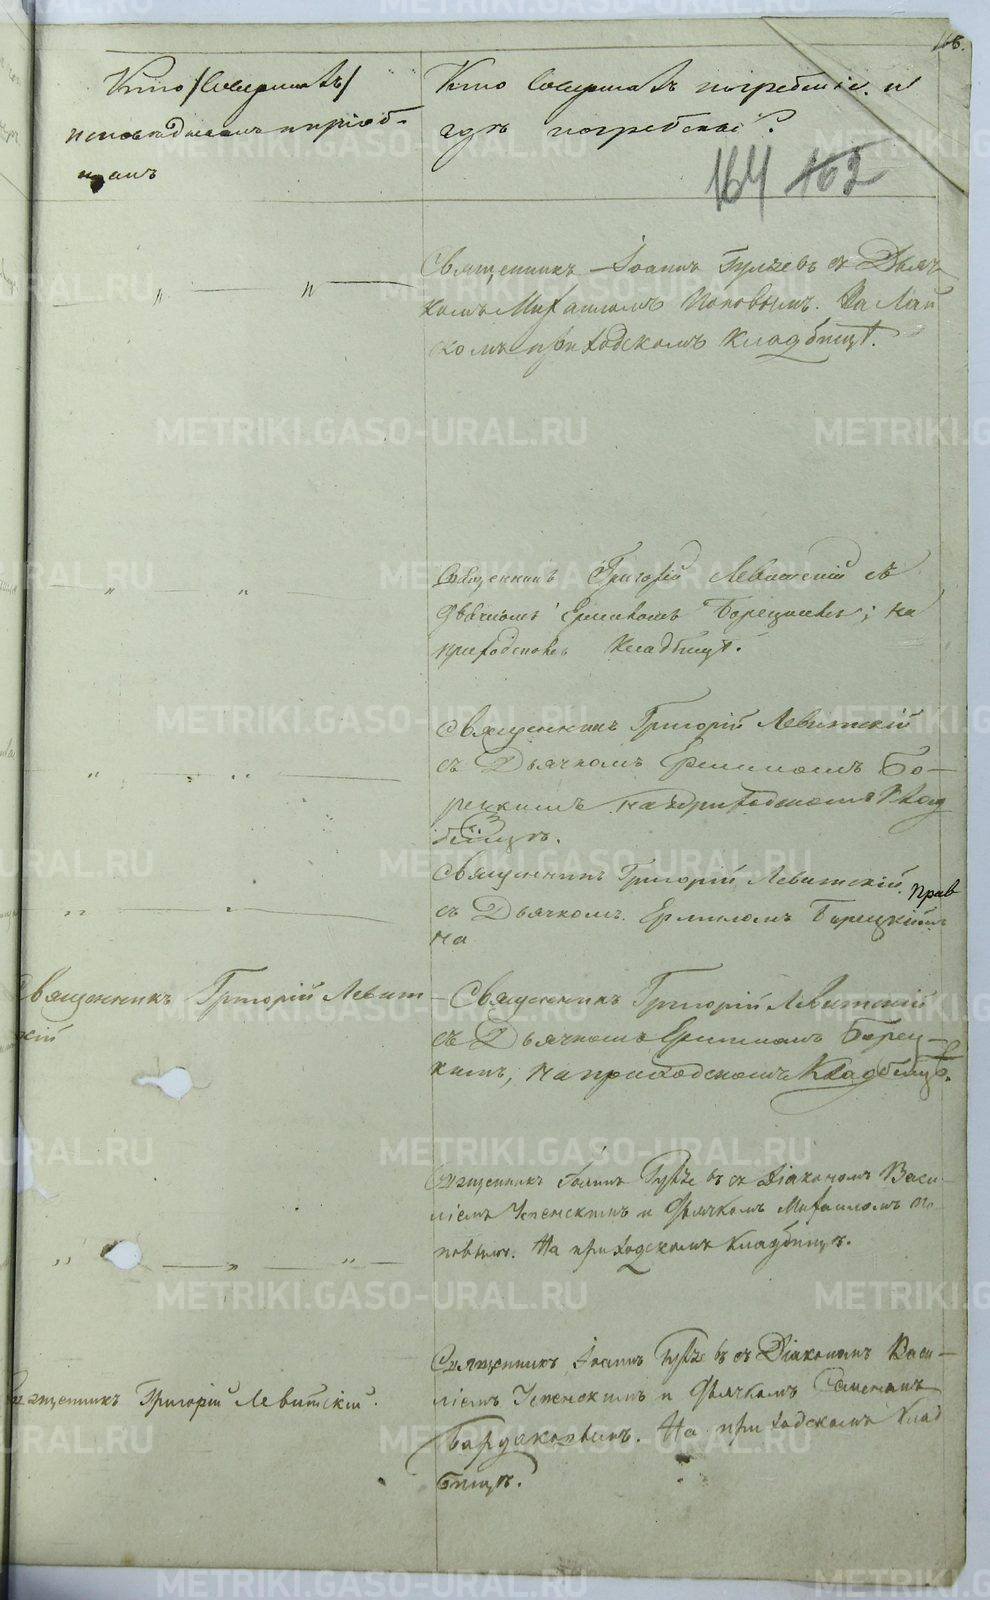 Кто /совершалъ/
исповѣдывалъ и пріоб-
щалъ
Кто совершалъ погребеніе и
гдѣ погребены?
164 162
Священникъ Іоаннъ Гуляевъ съ Дьяч
комъ Михаиломъ Поповымъ. На Лай
скомъ приходскомъ кладбищѣ.
Священникъ Григорій Левитскій съ
дьячкомъ Ермиломъ Борецкимъ; на
приходскомъ кладбищѣ.
Священникъ Григорій Левитскій
съ Дьячкомъ Ермиломъ Бо-
рецкимъ на приходскомъ клад
бищѣ.
Священникъ Григорій Левитскій прав
съ Дьячкомъ Ермиломъ Борецкимъ
на
Священникъ Григорій Левит
скій
Священникъ Григорій Левитскій
съ Дьячкомъ Ермиломъ Борец-
кимъ, на приходскомъ кладбищѣ.
Священникъ Іоаннъ Гуляевъ съ Діакономъ Васи-
ліемъ Успенскимъ и Дьячкомъ Михаиломъ По-
повымъ. На приходскомъ кладбищѣ.
Священникъ Григорій Левитскій.
Священникъ Іоаннъ Гуляевъ съ Діакономъ Васи-
ліемъ Успенскимъ и Дьячкомъ Семеномъ
Бардаковымъ. На приходскомъ клад
бищѣ.
METRIKI.GASO-URAL.RU